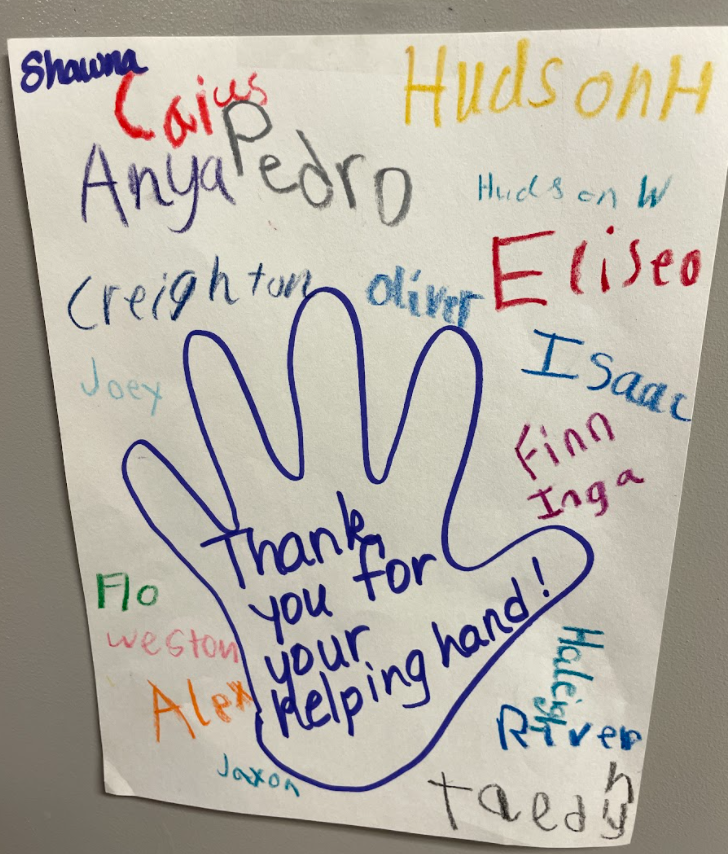 Shawna
Caius
HudsonH
Pedro
Anya
Hudson W
Eliseo
Creighton
Oliver
Isaac
Joey
Finn
Inga
Thank
you for
your
Helping hand!
Flo
Weston
Haleigh
Alex
River
Jaxon